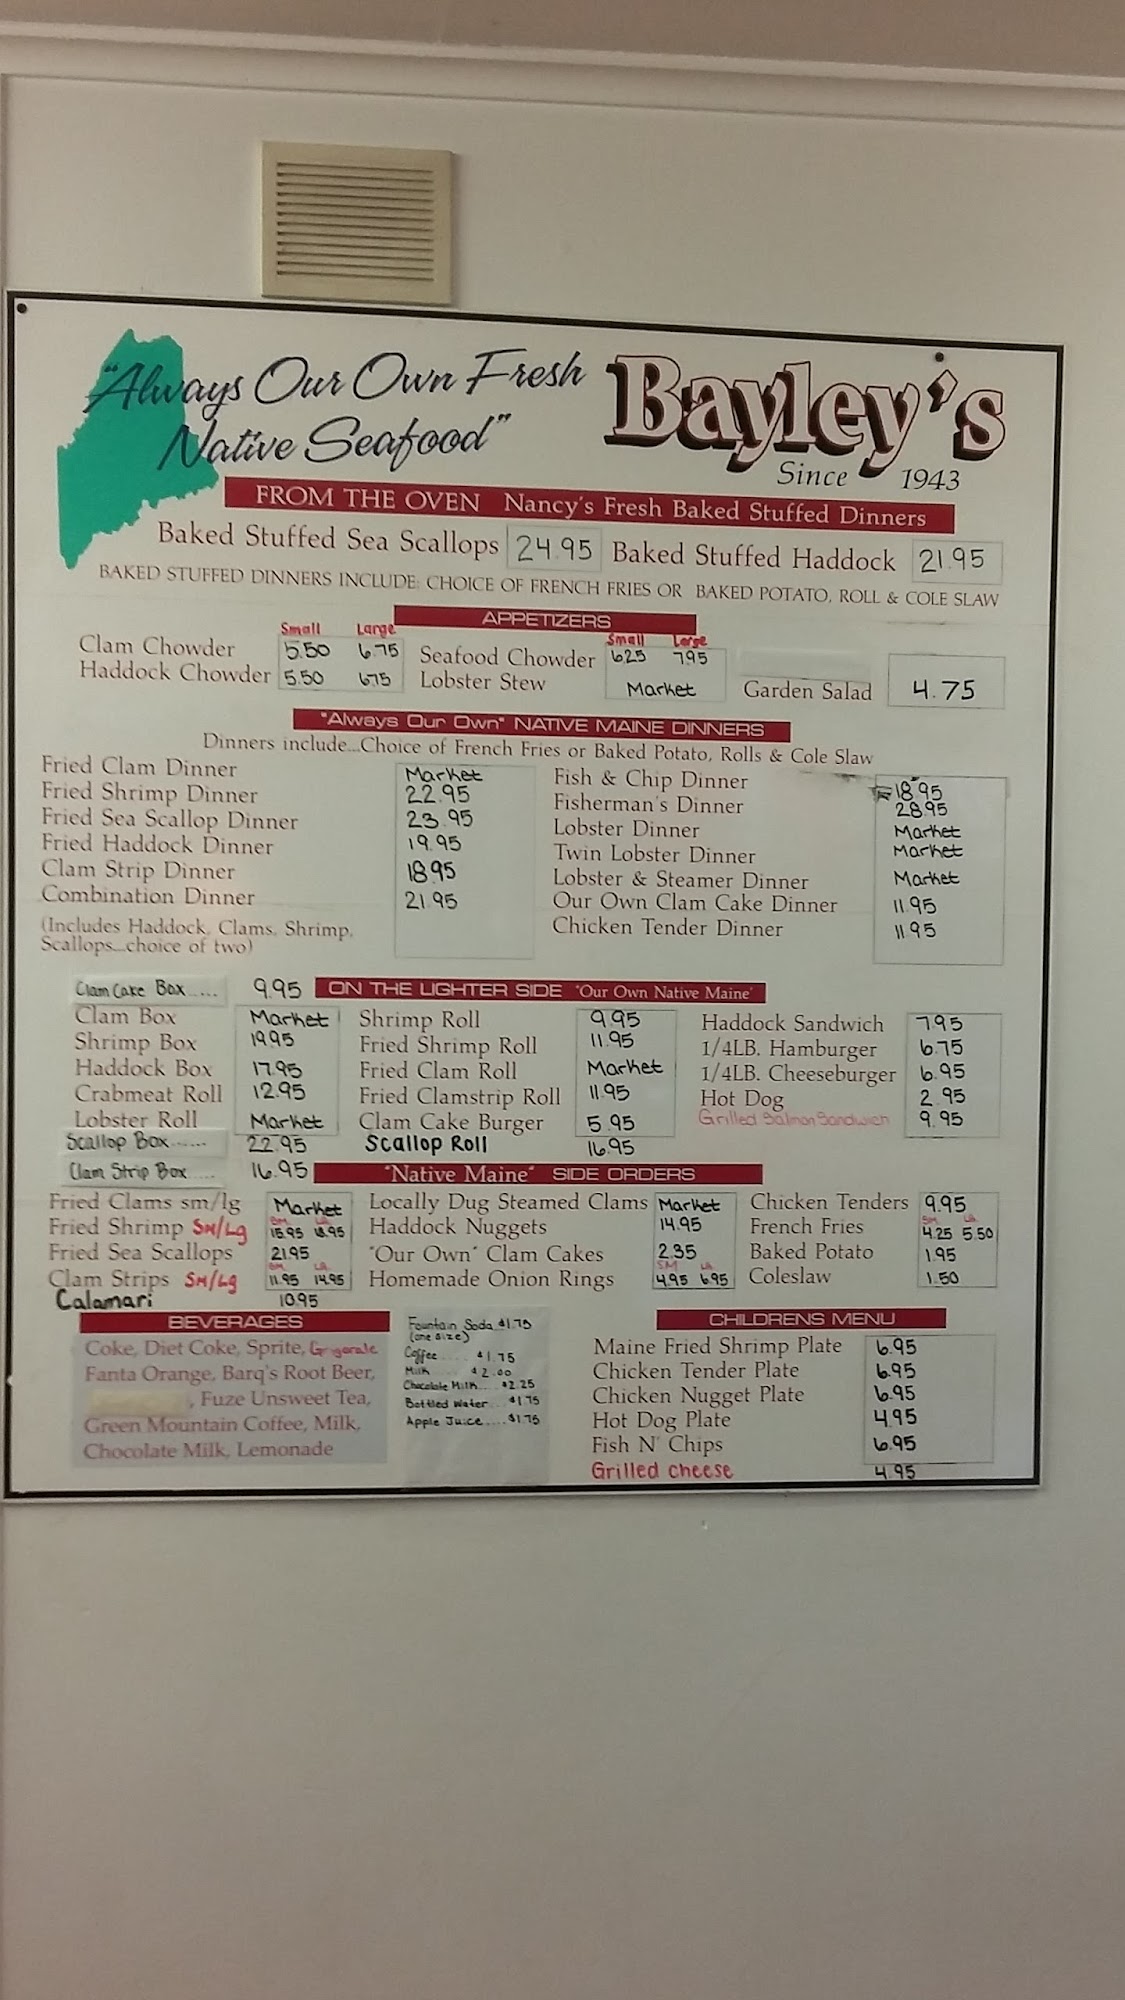 "Always Our Own Fresh
Native Seafood"
Bayley's
Since 1943
FROM THE OVEN Nancy's Fresh Baked Stuffed Dinners
Baked Stuffed Sea Scallops 24.95 Baked Stuffed Haddock 21.95
BAKED STUFFED DINNERS INCLUDE: CHOICE OF FRENCH FRIES OR BAKED POTATO, ROLL & COLE SLAW
APPETIZERS
Small Large
Clam Chowder 5.50 6.75
Haddock Chowder 5.50 6.75
Small Large
Seafood Chowder 6.25 7.95
Lobster Stew Market
Garden Salad 4.75
"Always Our Own" NATIVE MAINE DINNERS
Dinners include...Choice of French Fries or Baked Potato, Rolls & Cole Slaw
Fried Clam Dinner Market
Fried Shrimp Dinner 22.95
Fried Sea Scallop Dinner 23.95
Fried Haddock Dinner 19.95
Clam Strip Dinner 18.95
Combination Dinner 21.95
(Includes Haddock, Clams, Shrimp,
Scallops...choice of two)
Fish & Chip Dinner 18.95
Fisherman's Dinner 28.95
Lobster Dinner Market
Twin Lobster Dinner Market
Lobster & Steamer Dinner Market
Our Own Clam Cake Dinner 11.95
Chicken Tender Dinner 11.95
ON THE LIGHTER SIDE "Our Own Native Maine"
Clam Cake Box..... 9.95
Clam Box Market
Shrimp Box 19.95
Haddock Box 17.95
Crabmeat Roll 12.95
Lobster Roll Market
Scallop Box...... 22.95
Clam Strip Box..... 16.95
Shrimp Roll 9.95
Fried Shrimp Roll 11.95
Fried Clam Roll Market
Fried Clamstrip Roll 11.95
Clam Cake Burger 5.95
Scallop Roll 16.95
Haddock Sandwich 7.95
1/4LB. Hamburger 6.75
1/4LB. Cheeseburger 6.95
Hot Dog 2.95
Grilled Salmon Sandwich 9.95
"Native Maine" SIDE ORDERS
Fried Clams sm/lg Market
SM LG
Fried Shrimp SM/Lg 15.95 18.95
Fried Sea Scallops 21.95
SM LG
Clam Strips SM/Lg 11.95 14.95
Calamari 10.95
Locally Dug Steamed Clams Market
Haddock Nuggets 14.95
"Our Own" Clam Cakes 2.35
SM LG
Homemade Onion Rings 4.95 6.95
Chicken Tenders 9.95
SM LG
French Fries 4.25 5.50
Baked Potato 1.95
Coleslaw 1.50
BEVERAGES
Coke, Diet Coke, Sprite,
Fanta Orange, Barq's Root Beer,
, Fuze Unsweet Tea,
Green Mountain Coffee, Milk,
Chocolate Milk, Lemonade
Fountain Soda $1.75
(one size)
Coffee .... $1.75
Milk $2.00
Chocolate Milk.... $2.25
Bottled Water ..$1.75
Apple Juice....$1.75
CHILDRENS MENU
Maine Fried Shrimp Plate 6.95
Chicken Tender Plate 6.95
Chicken Nugget Plate 6.95
Hot Dog Plate 4.95
Fish N' Chips 6.95
Grilled cheese 4.95